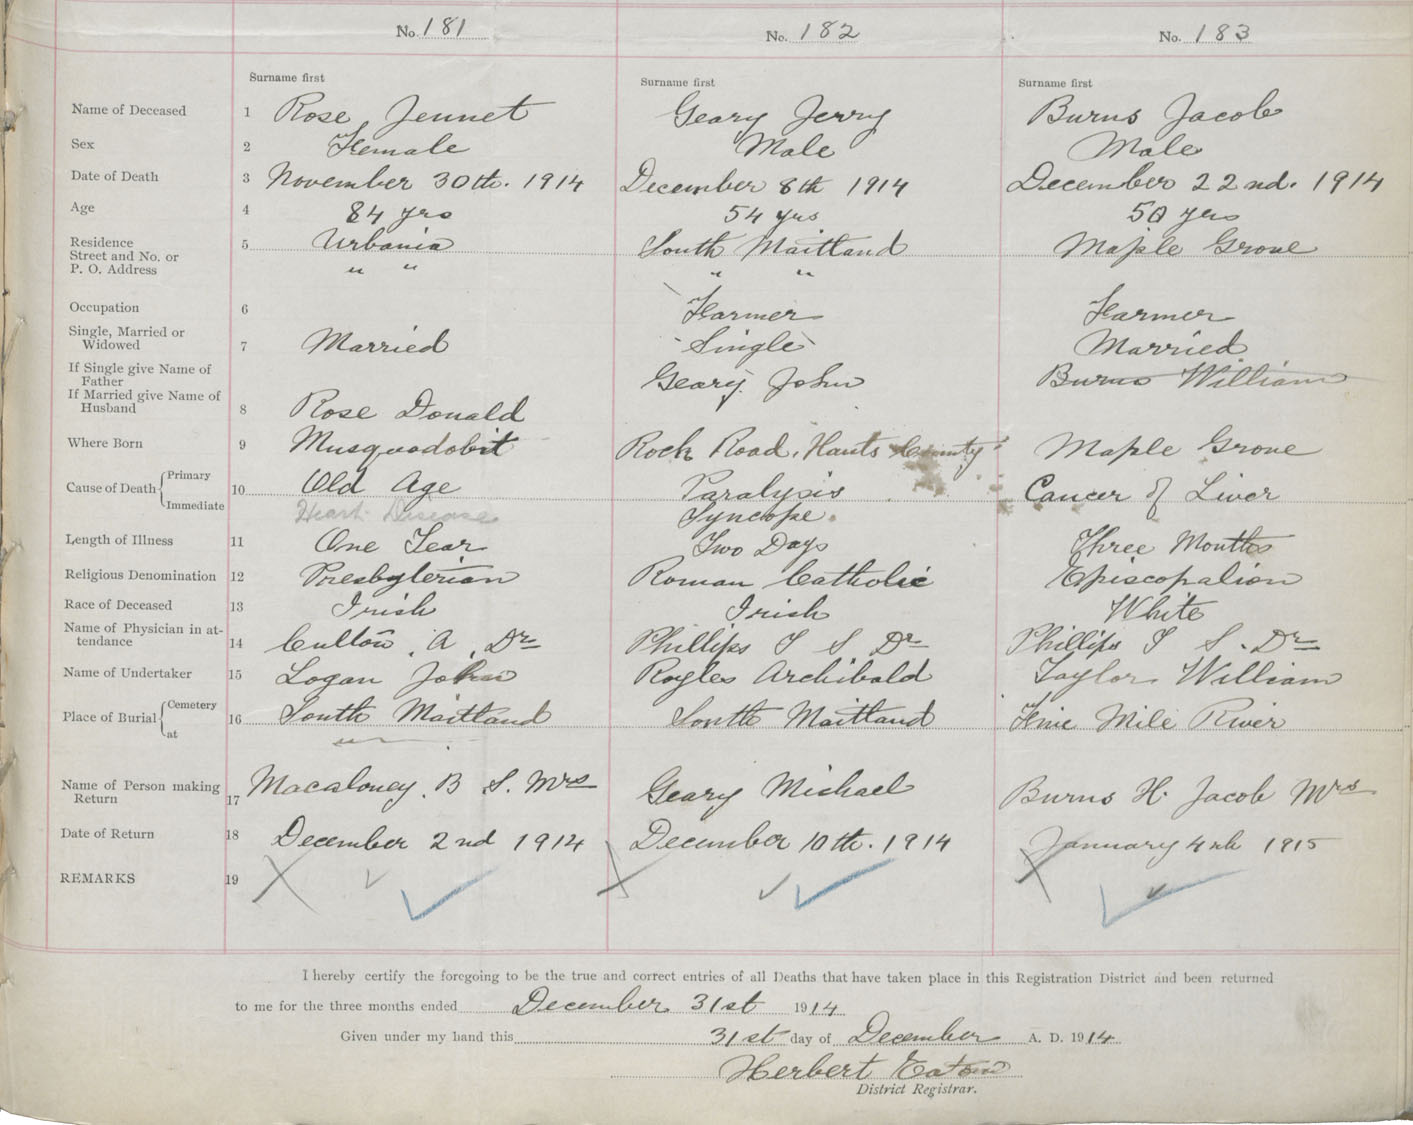 No. 181 No. 182 No. 183
Surname first Surname first Surname first
Name of Deceased 1 Rose Jennet Geary Jerry Burns Jacob
Sex 2 Female Male Male
Date of Death 3 November 30th. 1914 December 8th 1914 December 22nd. 1914
Age 4 84 yrs 54 yrs 50 yrs
Residence 5 Urbania South Maitland Maple Grove
Street and No. or
P. O. Address " " " "
Occupation 6 Farmer Farmer
Single, Married or
Widowed 7 Married Single Married
If Single give Name of
Father Geary John Burns William
If Married give Name of
Husband 8 Rose Donald
Where Born 9 Musquodobit Rock Road, Hants County Maple Grove
Cause of Death { Primary 10 Old Age Paralysis Cancer of Liver
Immediate Heart Disease Syncope.
Length of Illness 11 One Year Two Days Three Months
Religious Denomination 12 Presbyterian Roman Catholic Episcopalion
Race of Deceased 13 Irish Irish White
Name of Physician in at-
tendance 14 Culton, A, Dr Phillips T S Dr Phillips T S. Dr
Name of Undertaker 15 Logan John Royles Archibald Taylor William
Place of Burial { Cemetery 16 South Maitland South Maitland Mile River
at
Name of Person making
Return 17 Macaloney, B S. Mrs Geary Michael Burns H. Jacob Mrs
Date of Return 18 December 2nd 1914 December 10th. 1914 January 4th 1915
REMARKS 19
I hereby certify the foregoing to be the true and correct entries of all Deaths that have taken place in this Registration District and been returned
to me for the three months ended December 31st 1914
Given under my hand this 31st day of December A. D. 1914
Herbert Eaton
District Registrar.